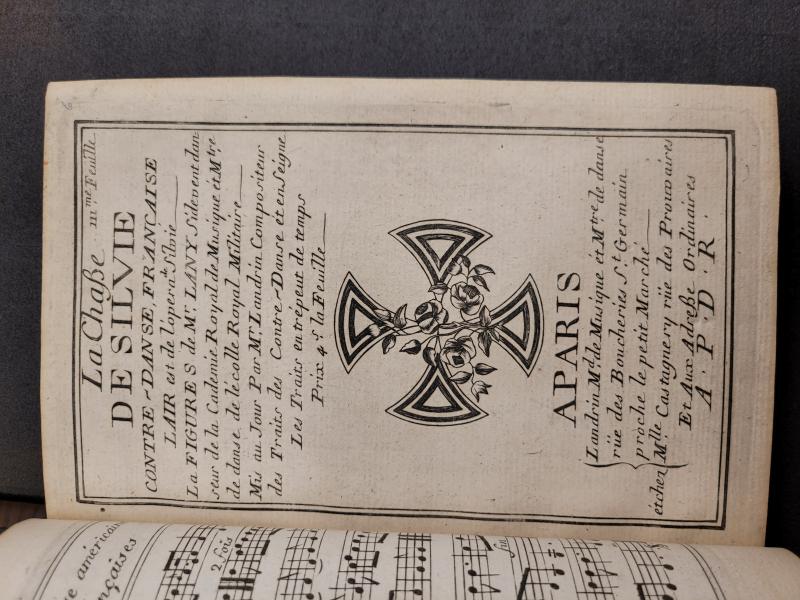 6
La Chaße III.me Feuille
DE SILVIE
CONTRE-DANSE FRANCAISE
L'AIR est de l'opera de Silvie
La FIGURES de Mr. LANY Sidevent dan-
seur de la Cademie Royal de Musique et Mtre
de danse, de lécolle Royal Militaire
Mis au Jour Par Mr. Landrin Compositeur
des Traits des Contre-Danse et enseigne
Les Traits en trépeut de temps
Prix 4 s. la Feuille
A PARIS
Landrin Md. de Musique et Mtre de danse
rüe des Boucheries St. Germain
proche le petit Marché
étchez Mlle Castagnery rüe des Prouvaires
Et Aux Adreße Ordinaires
A · P · D · R ·
e américain
nçaises
2 Fois